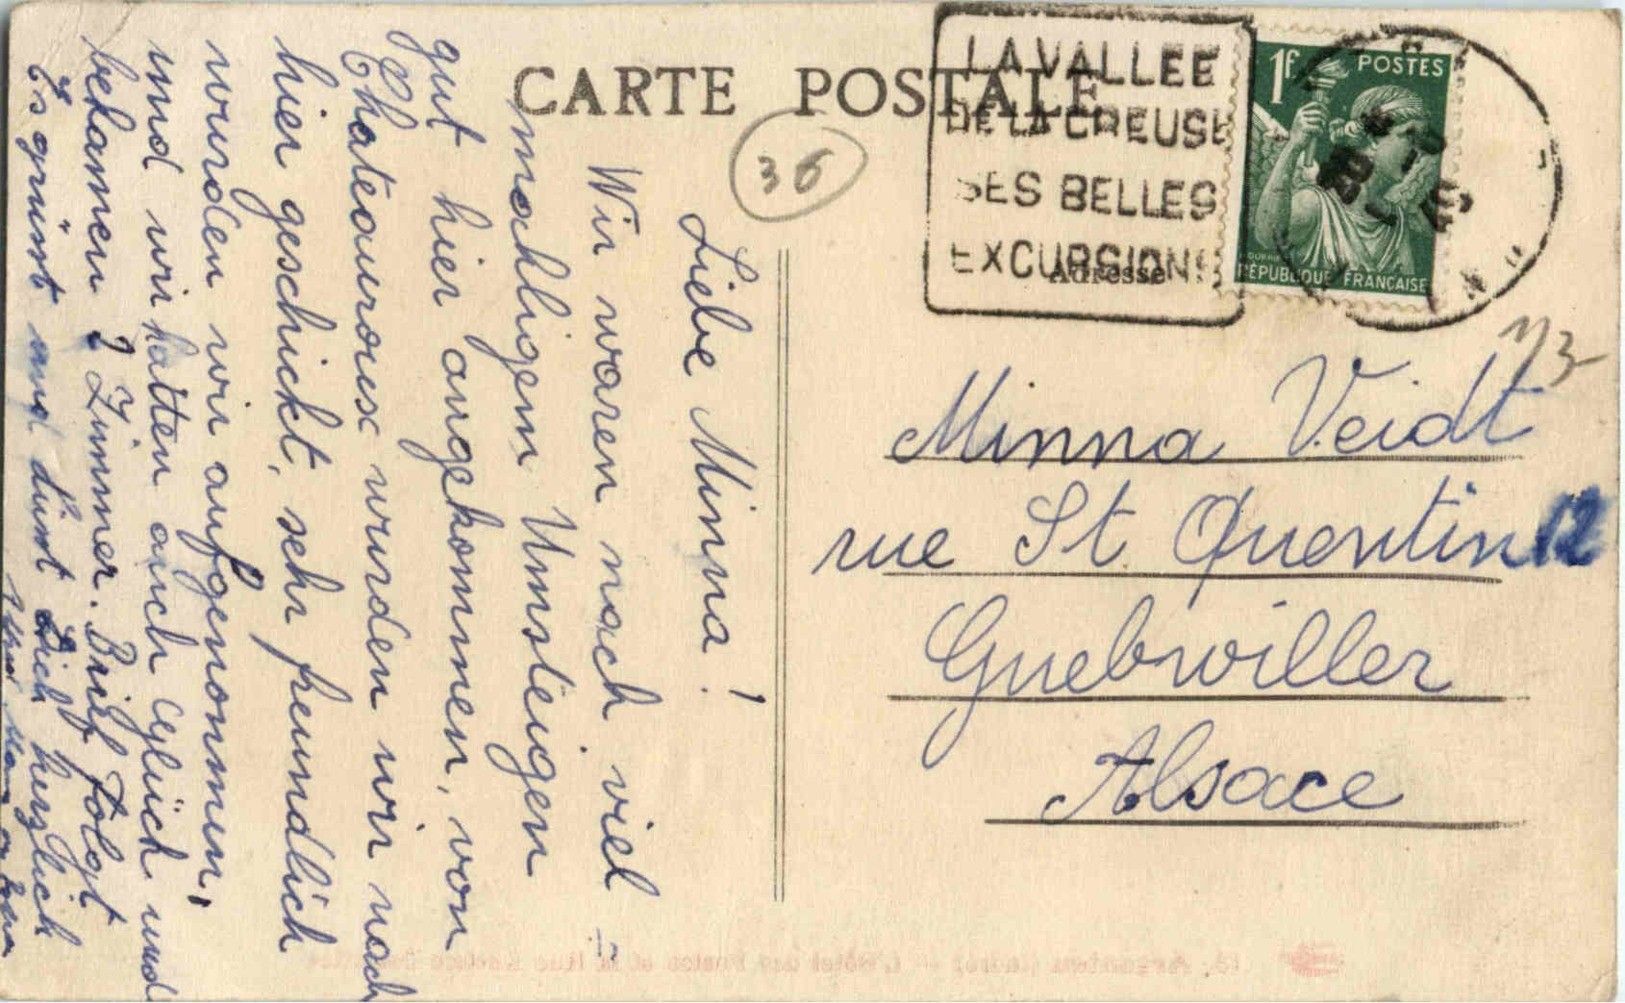 CARTE POSTALE
36
LA VALLEE
DE LA CREUSE
SES BELLES
EXCURSIONS
1f POSTES
RÉPUBLIQUE FRANÇAISE
Adresse
Minna Veidt
rue St Quentin 12
Guebwiller
Alsace
Liebe Minna!
Wir waren nach viel =
mahligem Umsteigen
gut hier angekommen, von
Chateauroux wurden wir nach
hier geschickt, sehr freundlich
wurden wir aufgenommen,
und wir hatten auch Glück und
bekamen 2 Zimmer. Brief folgt
Es grüsst und küsst Dich herzlich